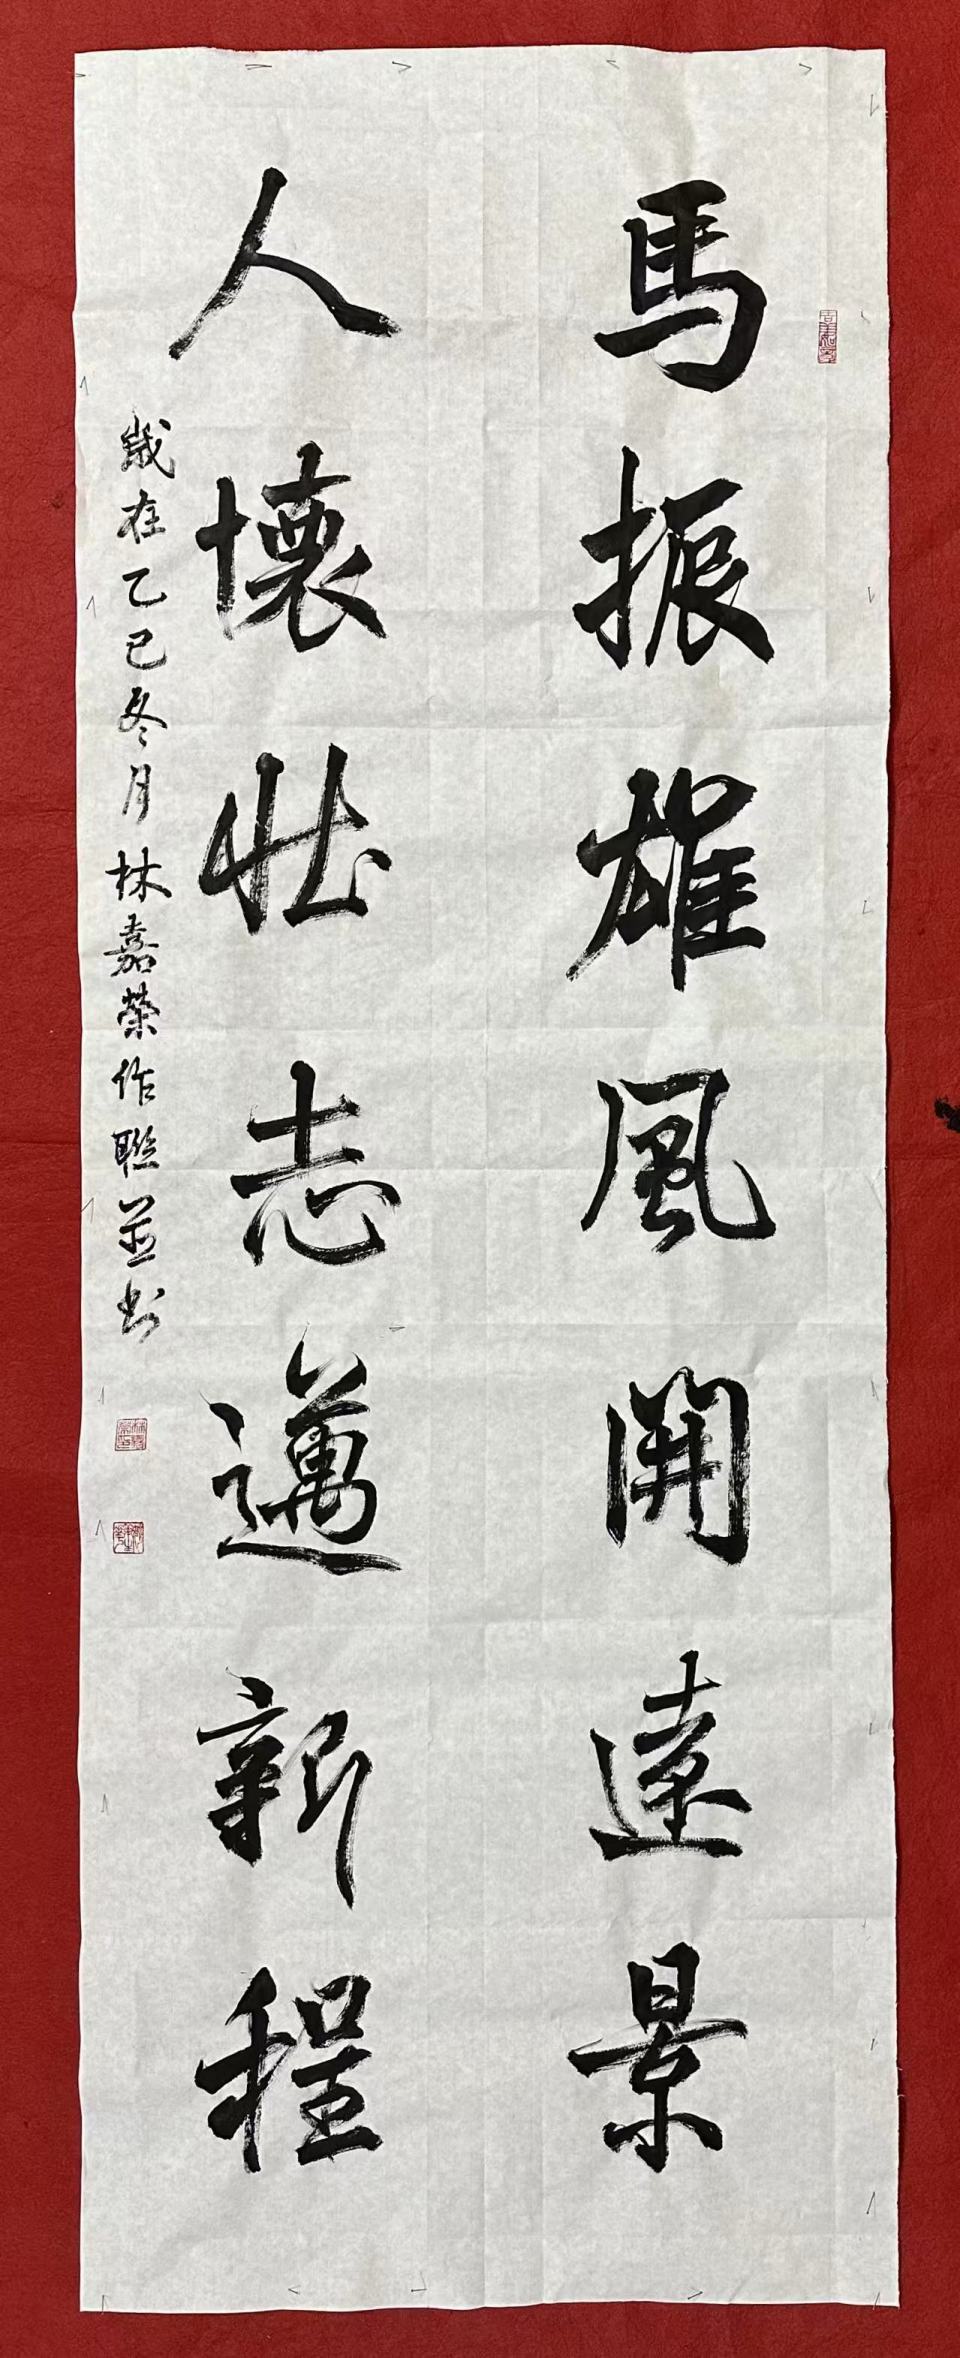 馬振雄風開遠景
人懷壯志邁新程
歲在乙巳冬月林嘉榮作聯並书